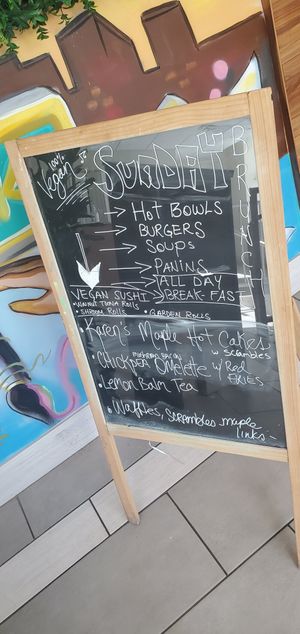 100%
Vegan
SUNDAY
BRUNCH
→ Hot BOWLS
→ BURGERS
→ Soups
→ PANINS
→ ALL DAY
BREAK-FAST
VEGAN SUSHI
• Tuna Rolls
• Shroom Rolls
• GARDEN ROLLS
• Karen's Maple Hot Cakes
w scrambles
• Chickpea Omelette w/ Red
FRIES
• Lemon Balm Tea
• Waffles, scrambles, maple
links -